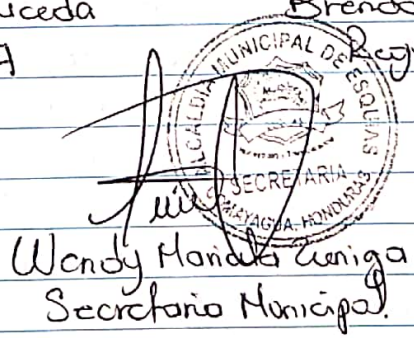 uceda Brenda
A
ALCALDIA MUNICIPAL DE ESQUIAS
SECRETARIA
COMAYAGUA, HONDURAS
Wendy Mariela Zuniga
Secretaria Municipal.